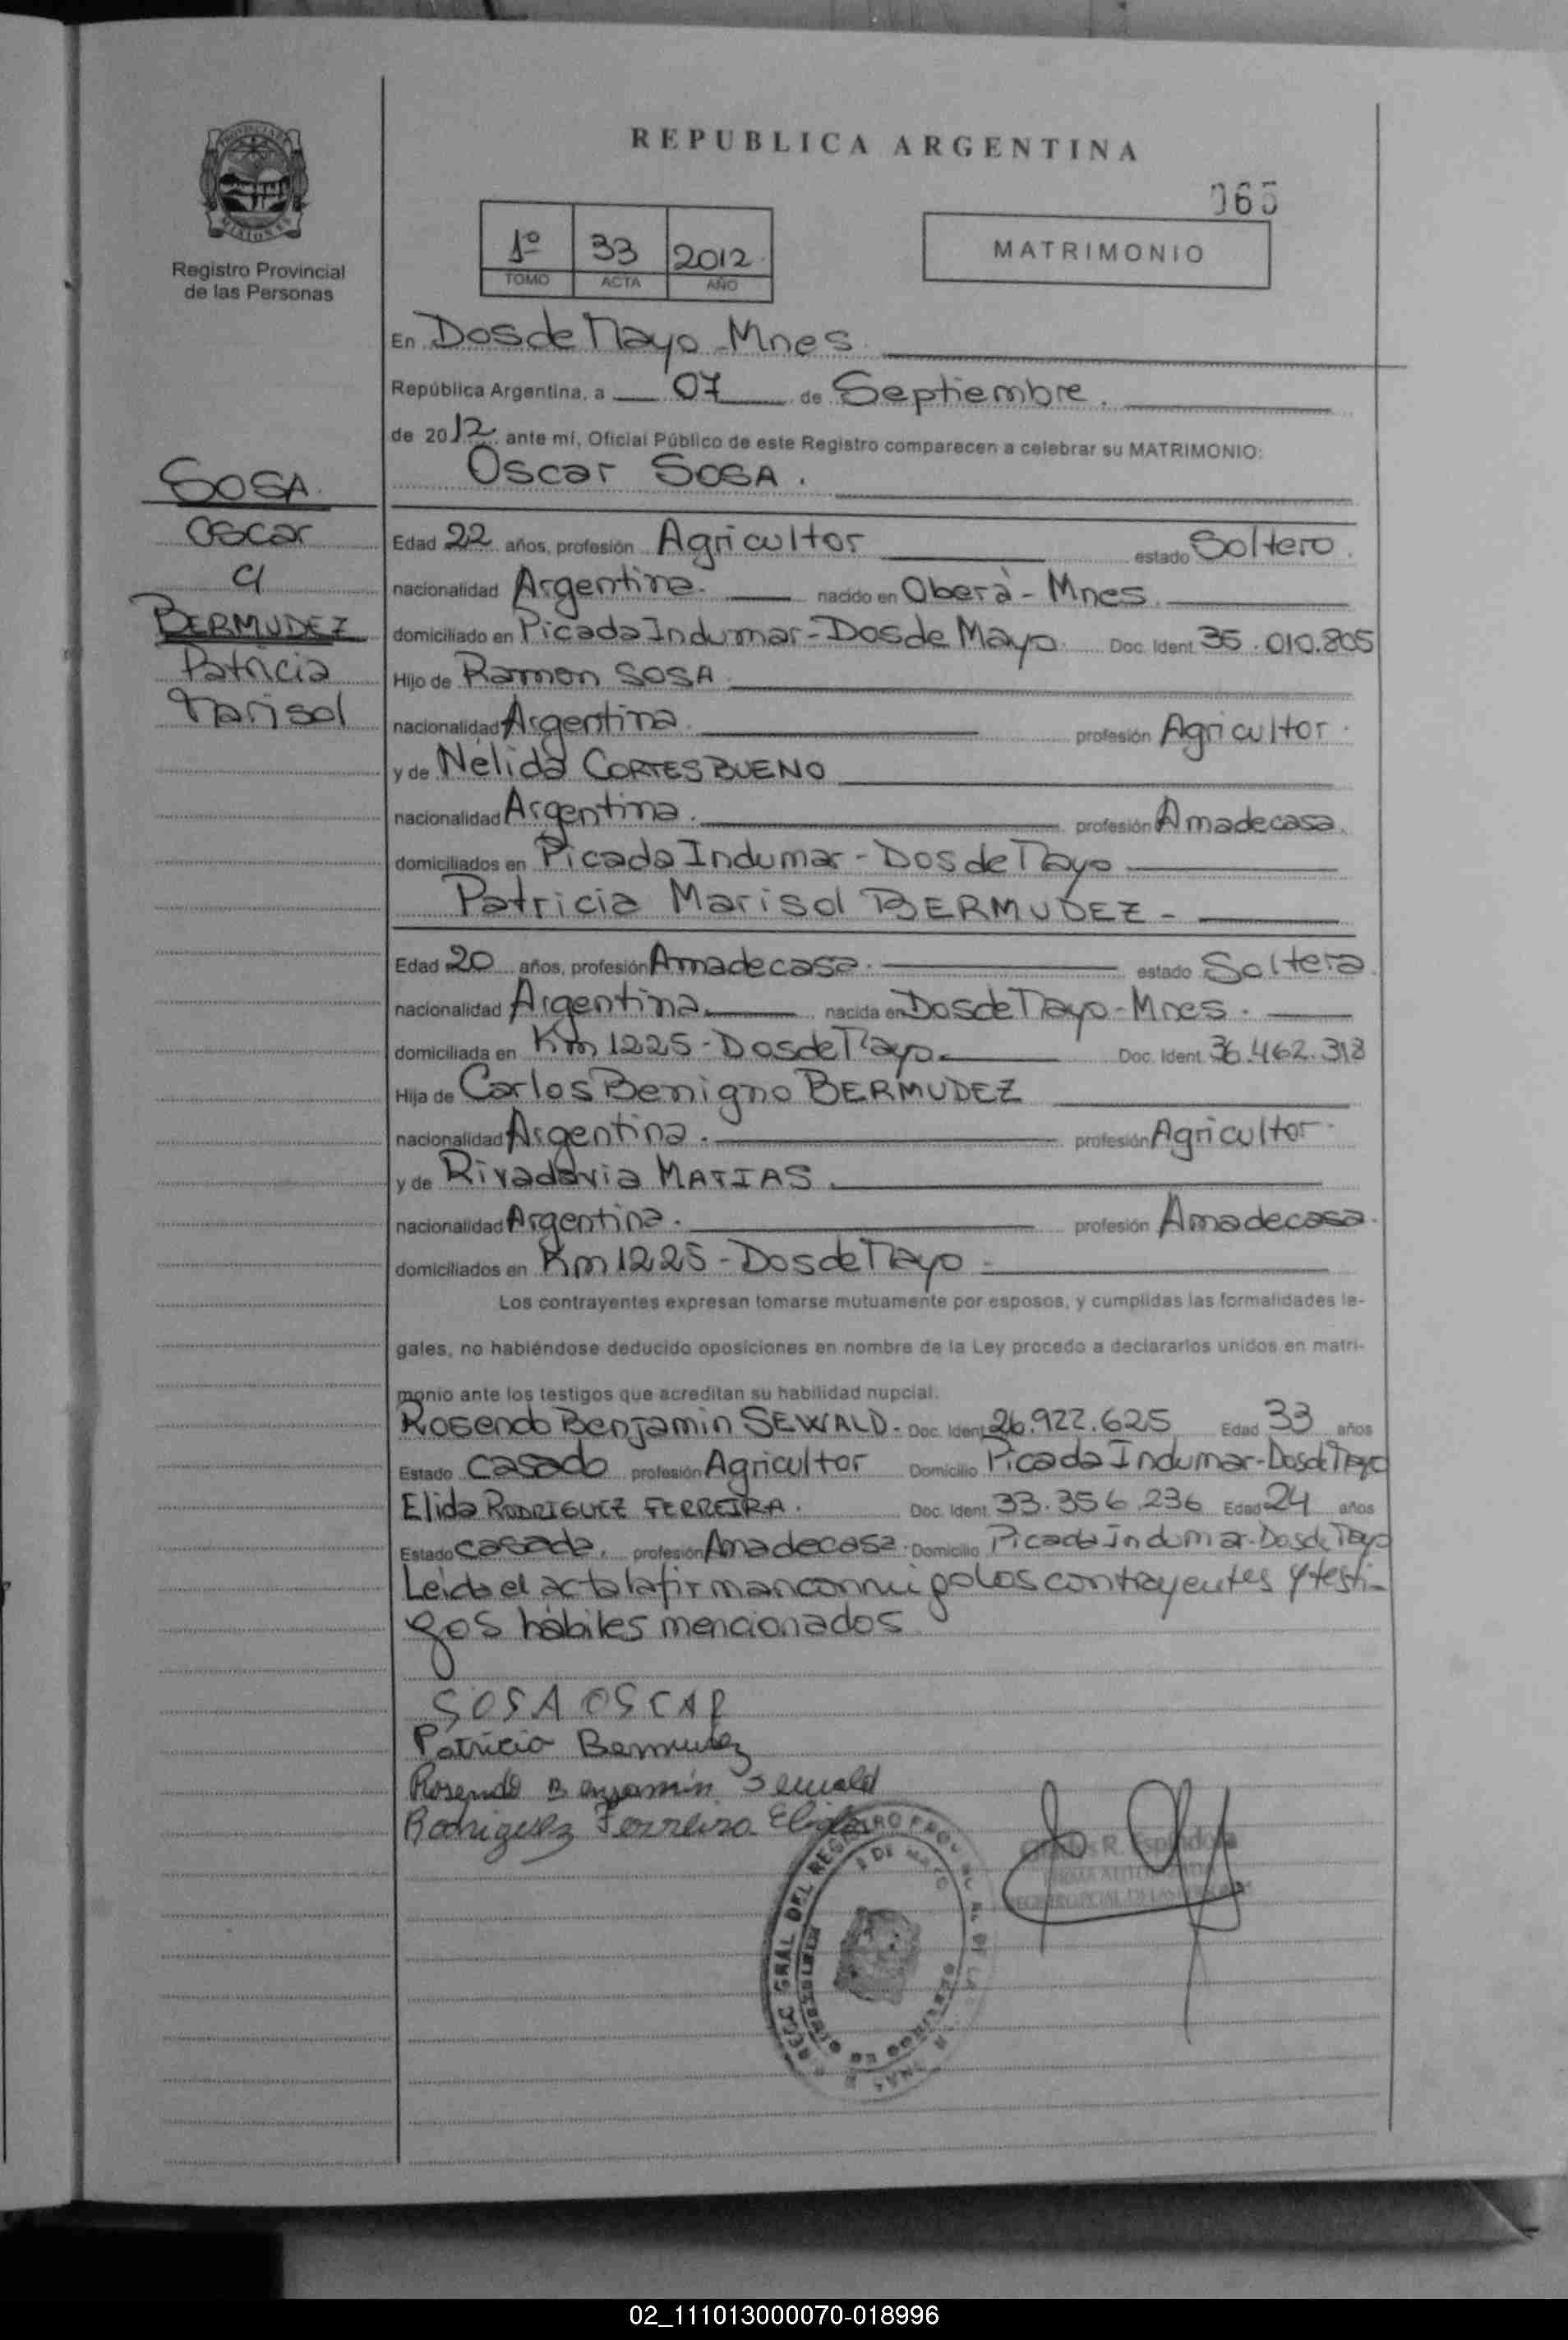 REPUBLICA ARGENTINA
065
MATRIMONIO
1º 33 2012
TOMO ACTA AÑO
Registro Provincial
de las Personas
En Dos de Mayo - Mnes
República Argentina, a 07 de Septiembre.
de 2012 ante mí, Oficial Público de este Registro comparecen a celebrar su MATRIMONIO:
Oscar SOSA.
SOSA
Oscar
c/
BERMUDEZ
Patricia
Marisol
Edad 22 años, profesión Agricultor estado Soltero.
nacionalidad Argentina. nacido en Oberà - Mnes.
domiciliado en Picada Indumar - Dos de Mayo. Doc. Ident. 35.010.805
Hijo de Ramon SOSA
nacionalidad Argentina profesión Agricultor.
y de Nélida CORTES BUENO
nacionalidad Argentina. profesión Ama de casa.
domiciliados en Picada Indumar - Dos de Mayo
Patricia Marisol BERMUDEZ -
Edad 20 años, profesión Ama de casa. estado Soltera.
nacionalidad Argentina. nacida en Dos de Mayo - Mnes.
domiciliada en Km 1225 - Dos de Mayo. Doc. Ident. 36.462.318
Hija de Carlos Benigno BERMUDEZ
nacionalidad Argentina. profesión Agricultor.
y de Rivadavia MATIAS.
nacionalidad Argentina. profesión Ama de casa.
domiciliados en Km 1225 - Dos de Mayo -
Los contrayentes expresan tomarse mutuamente por esposos, y cumplidas las formalidades le-
gales, no habiéndose deducido oposiciones en nombre de la Ley procedo a declararlos unidos en matri-
monio ante los testigos que acreditan su habilidad nupcial.
Rosendo Benjamin SEWALD. Doc. Ident. 26.922.625 Edad 33 años
Estado Casado profesión Agricultor Domicilio Picada Indumar - Dos de Mayo
Elida RODRIGUEZ FERREIRA. Doc. Ident. 33.356.236 Edad 24 años
Estado casada. profesión Ama de casa. Domicilio Picada indumar - Dos de Mayo
Leida el acta la firman conmigo los contrayentes y testi-
gos hábiles mencionados
SOSA OSCAR
Patricia Bermudez
Rosendo Benjamin Sewald
Rodriguez Ferreira Elida
R. Espindola
02_111013000070-018996